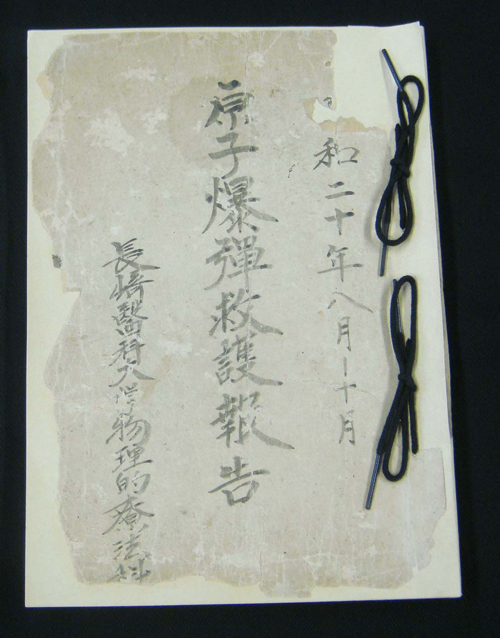 和二十年八月-十月
原子爆彈救護報告
長崎醫科大学物理的療法科